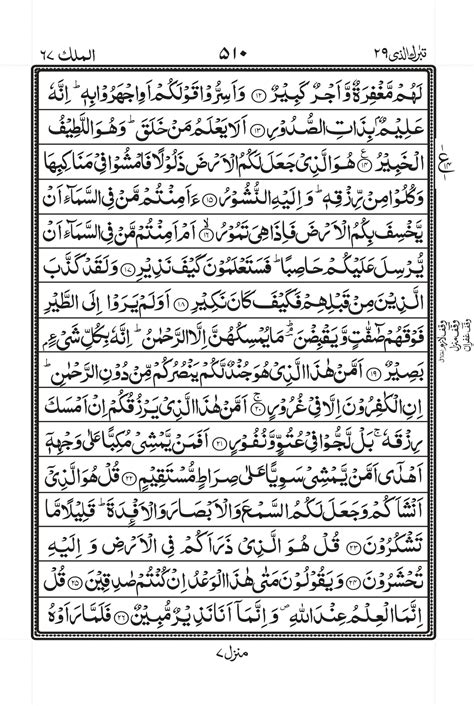 تبٰرك الذی ۲۹ ۵۱۰ الملك ۶۷
لَهُمْ مَّغْفِرَةٌ وَّاَجْرٌ كَبِیْرٌ ﴿۱۲﴾ وَاَسِرُّوْا قَوْلَكُمْ اَوِ اجْهَرُوْا بِهٖ ؕ اِنَّهٗ
عَلِیْمٌۢ بِذَاتِ الصُّدُوْرِ ﴿۱۳﴾ اَلَا یَعْلَمُ مَنْ خَلَقَ ؕ وَهُوَ اللَّطِیْفُ
الْخَبِیْرُ ﴿۱۴﴾ هُوَ الَّذِیْ جَعَلَ لَكُمُ الْاَرْضَ ذَلُوْلًا فَامْشُوْا فِیْ مَنَاكِبِهَا
وَكُلُوْا مِنْ رِّزْقِهٖ ؕ وَاِلَیْهِ النُّشُوْرُ ﴿۱۵﴾ ءَاَمِنْتُمْ مَّنْ فِی السَّمَآءِ اَنْ
یَّخْسِفَ بِكُمُ الْاَرْضَ فَاِذَا هِیَ تَمُوْرُ ﴿۱۶﴾ اَمْ اَمِنْتُمْ مَّنْ فِی السَّمَآءِ اَنْ
یُّرْسِلَ عَلَیْكُمْ حَاصِبًا ؕ فَسَتَعْلَمُوْنَ كَیْفَ نَذِیْرِ ﴿۱۷﴾ وَلَقَدْ كَذَّبَ
الَّذِیْنَ مِنْ قَبْلِهِمْ فَكَیْفَ كَانَ نَكِیْرِ ﴿۱۸﴾ اَوَلَمْ یَرَوْا اِلَی الطَّیْرِ
فَوْقَهُمْ صٰٓفّٰتٍ وَّیَقْبِضْنَ ؔۘؕ مَا یُمْسِكُهُنَّ اِلَّا الرَّحْمٰنُ ؕ اِنَّهٗ بِكُلِّ شَیْءٍۭ
بَصِیْرٌ ﴿۱۹﴾ اَمَّنْ هٰذَا الَّذِیْ هُوَ جُنْدٌ لَّكُمْ یَنْصُرُكُمْ مِّنْ دُوْنِ الرَّحْمٰنِ ؕ
اِنِ الْكٰفِرُوْنَ اِلَّا فِیْ غُرُوْرٍ ﴿۲۰﴾ اَمَّنْ هٰذَا الَّذِیْ یَرْزُقُكُمْ اِنْ اَمْسَكَ
رِزْقَهٗ ۚ بَلْ لَّجُّوْا فِیْ عُتُوٍّ وَّنُفُوْرٍ ﴿۲۱﴾ اَفَمَنْ یَّمْشِیْ مُكِبًّا عَلٰی وَجْهِهٖۤ
اَهْدٰۤی اَمَّنْ یَّمْشِیْ سَوِیًّا عَلٰی صِرَاطٍ مُّسْتَقِیْمٍ ﴿۲۲﴾ قُلْ هُوَ الَّذِیْۤ
اَنْشَاَكُمْ وَجَعَلَ لَكُمُ السَّمْعَ وَالْاَبْصَارَ وَالْاَفْـِٕدَةَ ؕ قَلِیْلًا مَّا
تَشْكُرُوْنَ ﴿۲۳﴾ قُلْ هُوَ الَّذِیْ ذَرَاَكُمْ فِی الْاَرْضِ وَ اِلَیْهِ
تُحْشَرُوْنَ ﴿۲۴﴾ وَیَقُوْلُوْنَ مَتٰی هٰذَا الْوَعْدُ اِنْ كُنْتُمْ صٰدِقِیْنَ ﴿۲۵﴾ قُلْ
اِنَّمَا الْعِلْمُ عِنْدَ اللّٰهِ ۪ وَاِنَّمَاۤ اَنَا نَذِیْرٌ مُّبِیْنٌ ﴿۲۶﴾ فَلَمَّا رَاَوْهُ
منزل ۷